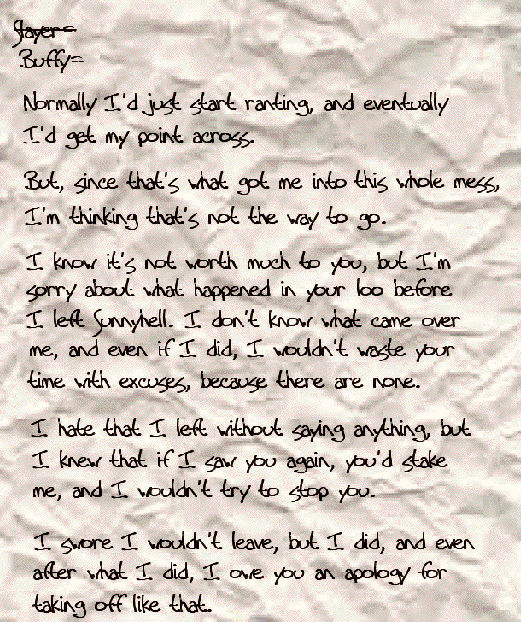 Slayer-
Buffy-
Normally I'd just start ranting, and eventually
I'd get my point across.
But, since that's what got me into this whole mess,
I'm thinking that's not the way to go.
I know it's not worth much to you, but I'm
sorry about what happened in your loo before
I left Sunnyhell. I don't know what came over
me, and even if I did, I wouldn't waste your
time with excuses, because there are none.
I hate that I left without saying anything, but
I knew that if I saw you again, you'd stake
me, and I wouldn't try to stop you.
I swore I wouldn't leave, but I did, and even
after what I did, I owe you an apology for
taking off like that.